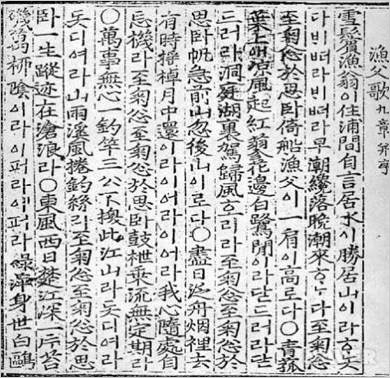 漁父歌 九章 幷序
雪鬢漁翁이住浦間自言居水이勝居山이라ᄒᆞ놋
다ᄇᆡᄠᅥ라ᄇᆡᄠᅥ라早潮纔落晚潮來ᄒᆞᄂᆞ다至匊忩
至匊忩於思臥倚船漁父이一肩이高로다○靑菰
葉上애凉風起紅蓼花邊白鷺閒이라닫드러라닫
드러라洞庭湖裏駕歸風호리라至匊忩至匊忩於
思臥帆急前山忽後山이로다○盡日泛舟烟裏去
有時搖棹月中還이라이어라이어라我心隨處自
忘機라至匊忩至匊忩於思臥鼓枻乘流無定期라
○萬事無心一釣竿三公不換此江山라돗디여라
돗디여라山雨溪風捲釣絲라至匊忩至匊忩於思
臥一生蹤迹在滄浪라○東風西日楚江深一片苔
磯萬柳陰이라이퍼라이퍼라綠萍身世白鷗